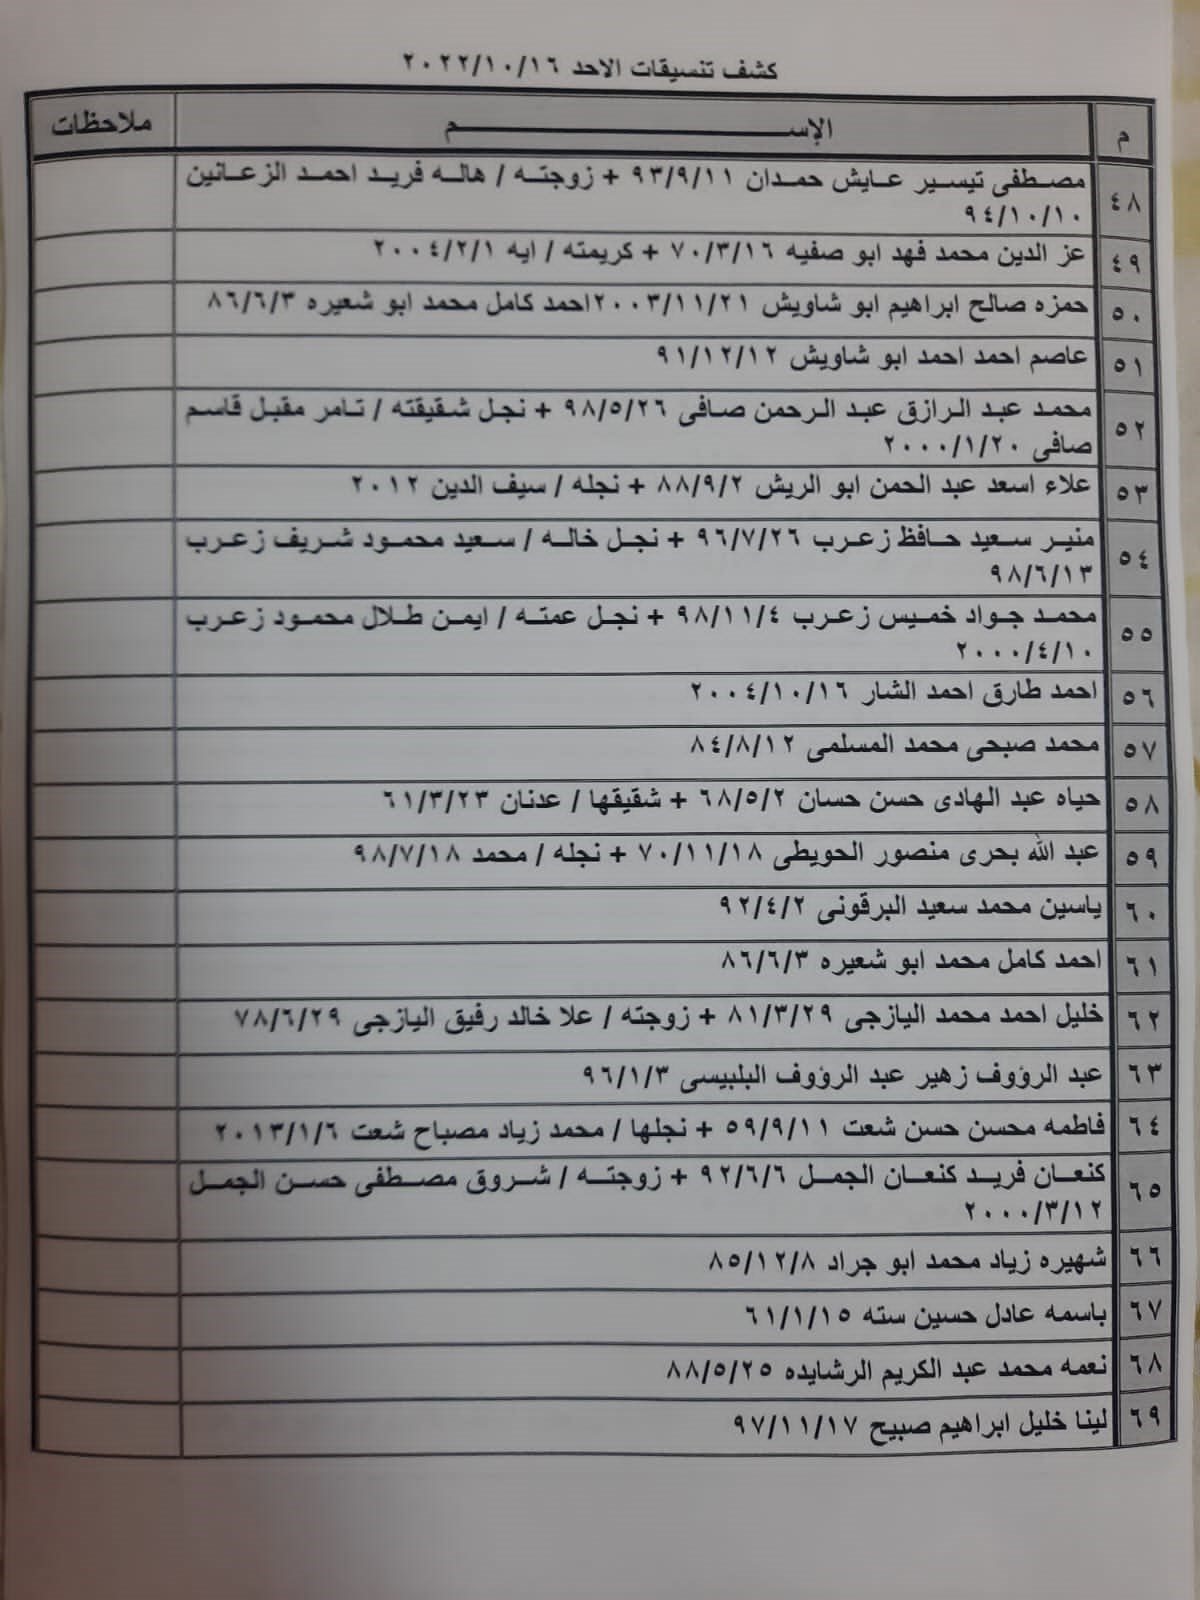 كشف تنسيقات الاحد ٢٠٢٢/١٠/١٦
م الإســـــــم ملاحظات
٤٨ مصطفى تيسير عايش حمدان ٩٣/٩/١١ + زوجته / هاله فريد احمد الزعانين
٩٤/١٠/١٠
٤٩ عز الدين محمد فهد ابو صفيه ٧٠/٣/١٦ + كريمته / ايه ٢٠٠٤/٢/١
٥٠ حمزه صالح ابراهيم ابو شاويش ٢٠٠٣/١١/٢١احمد كامل محمد ابو شعيره ٨٦/٦/٣
٥١ عاصم احمد احمد ابو شاويش ٩١/١٢/١٢
٥٢ محمد عبد الرازق عبد الرحمن صافى ٩٨/٥/٢٦ + نجل شقيقته / تامر مقبل قاسم
صافى ٢٠٠٠/١/٢٠
٥٣ علاء اسعد عبد الحمن ابو الريش ٨٨/٩/٢ + نجله / سيف الدين ٢٠١٢
٥٤ منير سعيد حافظ زعرب ٩٦/٧/٢٦ + نجل خاله / سعيد محمود شريف زعرب
٩٨/٦/١٣
٥٥ محمد جواد خميس زعرب ٩٨/١١/٤ + نجل عمته / ايمن طلال محمود زعرب
٢٠٠٠/٤/١٠
٥٦ احمد طارق احمد الشار ٢٠٠٤/١٠/١٦
٥٧ محمد صبحى محمد المسلمى ٨٤/٨/١٢
٥٨ حياه عبد الهادى حسن حسان ٦٨/٥/٢ + شقيقها / عدنان ٦١/٣/٢٣
٥٩ عبد الله بحرى منصور الحويطى ٧٠/١١/١٨ + نجله / محمد ٩٨/٧/١٨
٦٠ ياسين محمد سعيد البرقونى ٩٢/٤/٢
٦١ احمد كامل محمد ابو شعيره ٨٦/٦/٣
٦٢ خليل احمد محمد اليازجى ٨١/٣/٢٩ + زوجته / علا خالد رفيق اليازجى ٧٨/٦/٢٩
٦٣ عبد الرؤوف زهير عبد الرؤوف البلبيسى ٩٦/١/٣
٦٤ فاطمه محسن حسن شعت ٥٩/٩/١١ + نجلها / محمد زياد مصباح شعت ٢٠١٣/١/٦
٦٥ كنعان فريد كنعان الجمل ٩٢/٦/٦ + زوجته / شروق مصطفى حسن الجمل
٢٠٠٠/٣/١٢
٦٦ شهيره زياد محمد ابو جراد ٨٥/١٢/٨
٦٧ باسمه عادل حسين سته ٦١/١/١٥
٦٨ نعمه محمد عبد الكريم الرشايده ٨٨/٥/٢٥
٦٩ لينا خليل ابراهيم صبيح ٩٧/١١/١٧